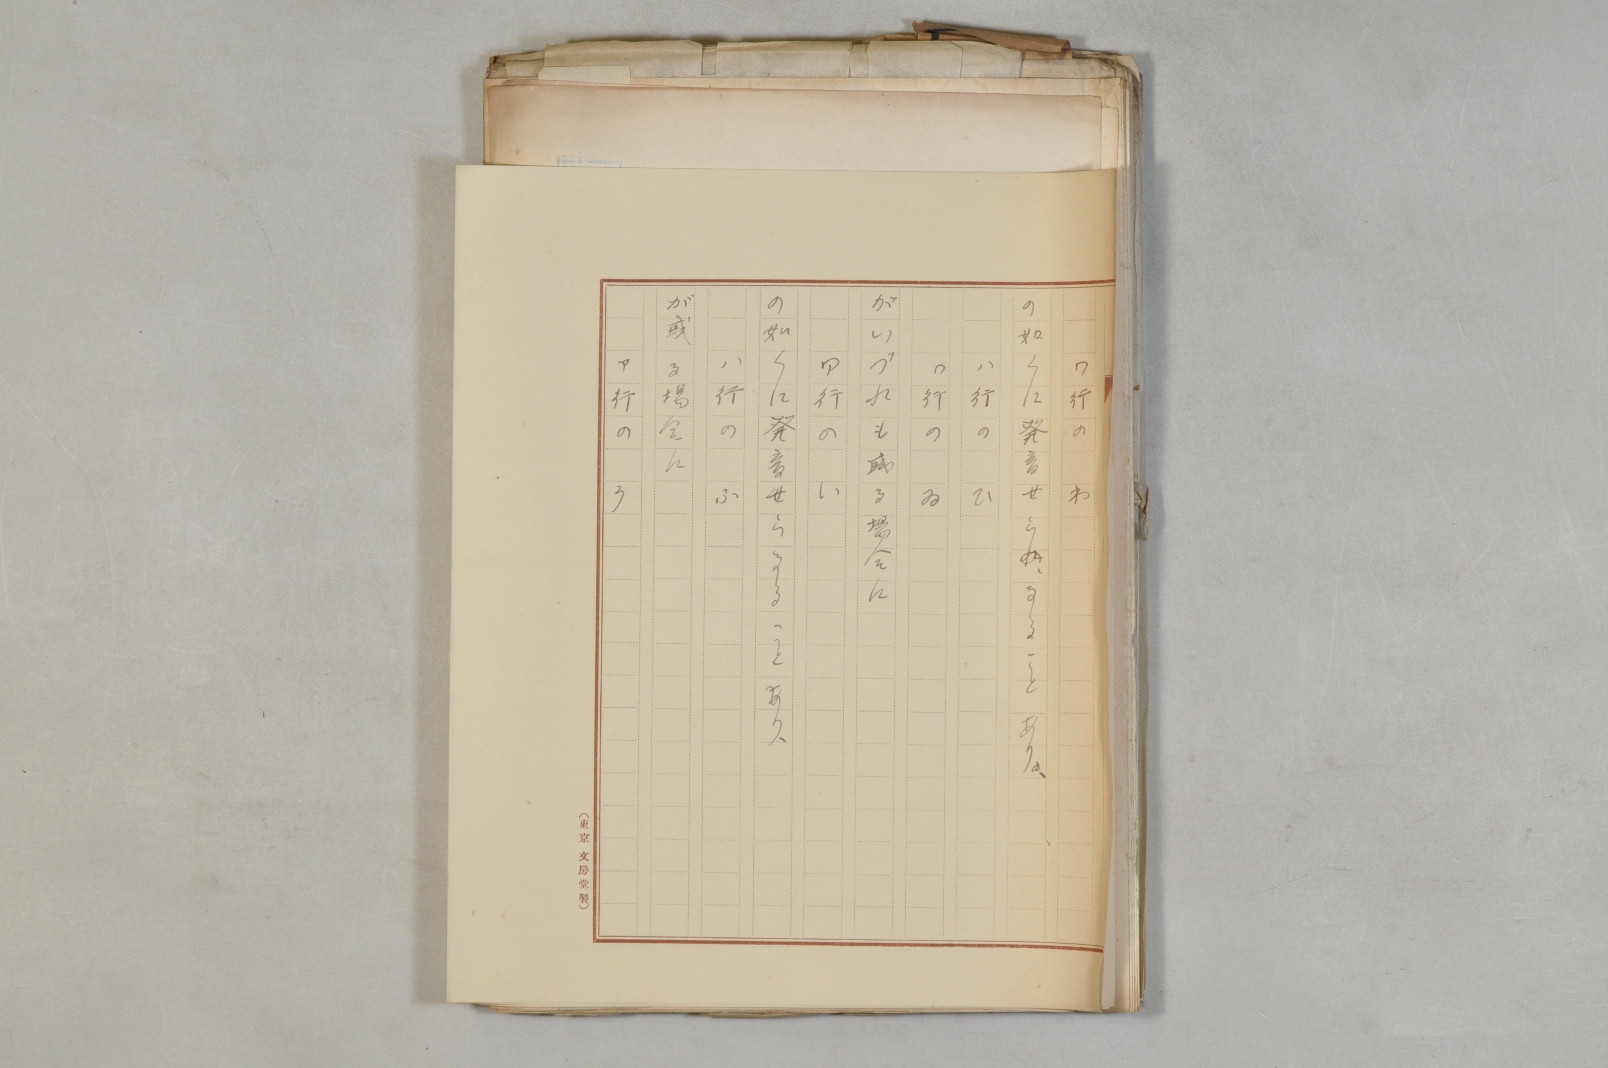 ワ行の わ
の如くに発音せらるることあり、
ハ行の ひ
ワ行の ゐ
がいづれも或る場合に
ア行の い
の如くに発音せらるることあり、
ハ行の ふ
が或る場合に
ア行の う
（東京 文房堂製）